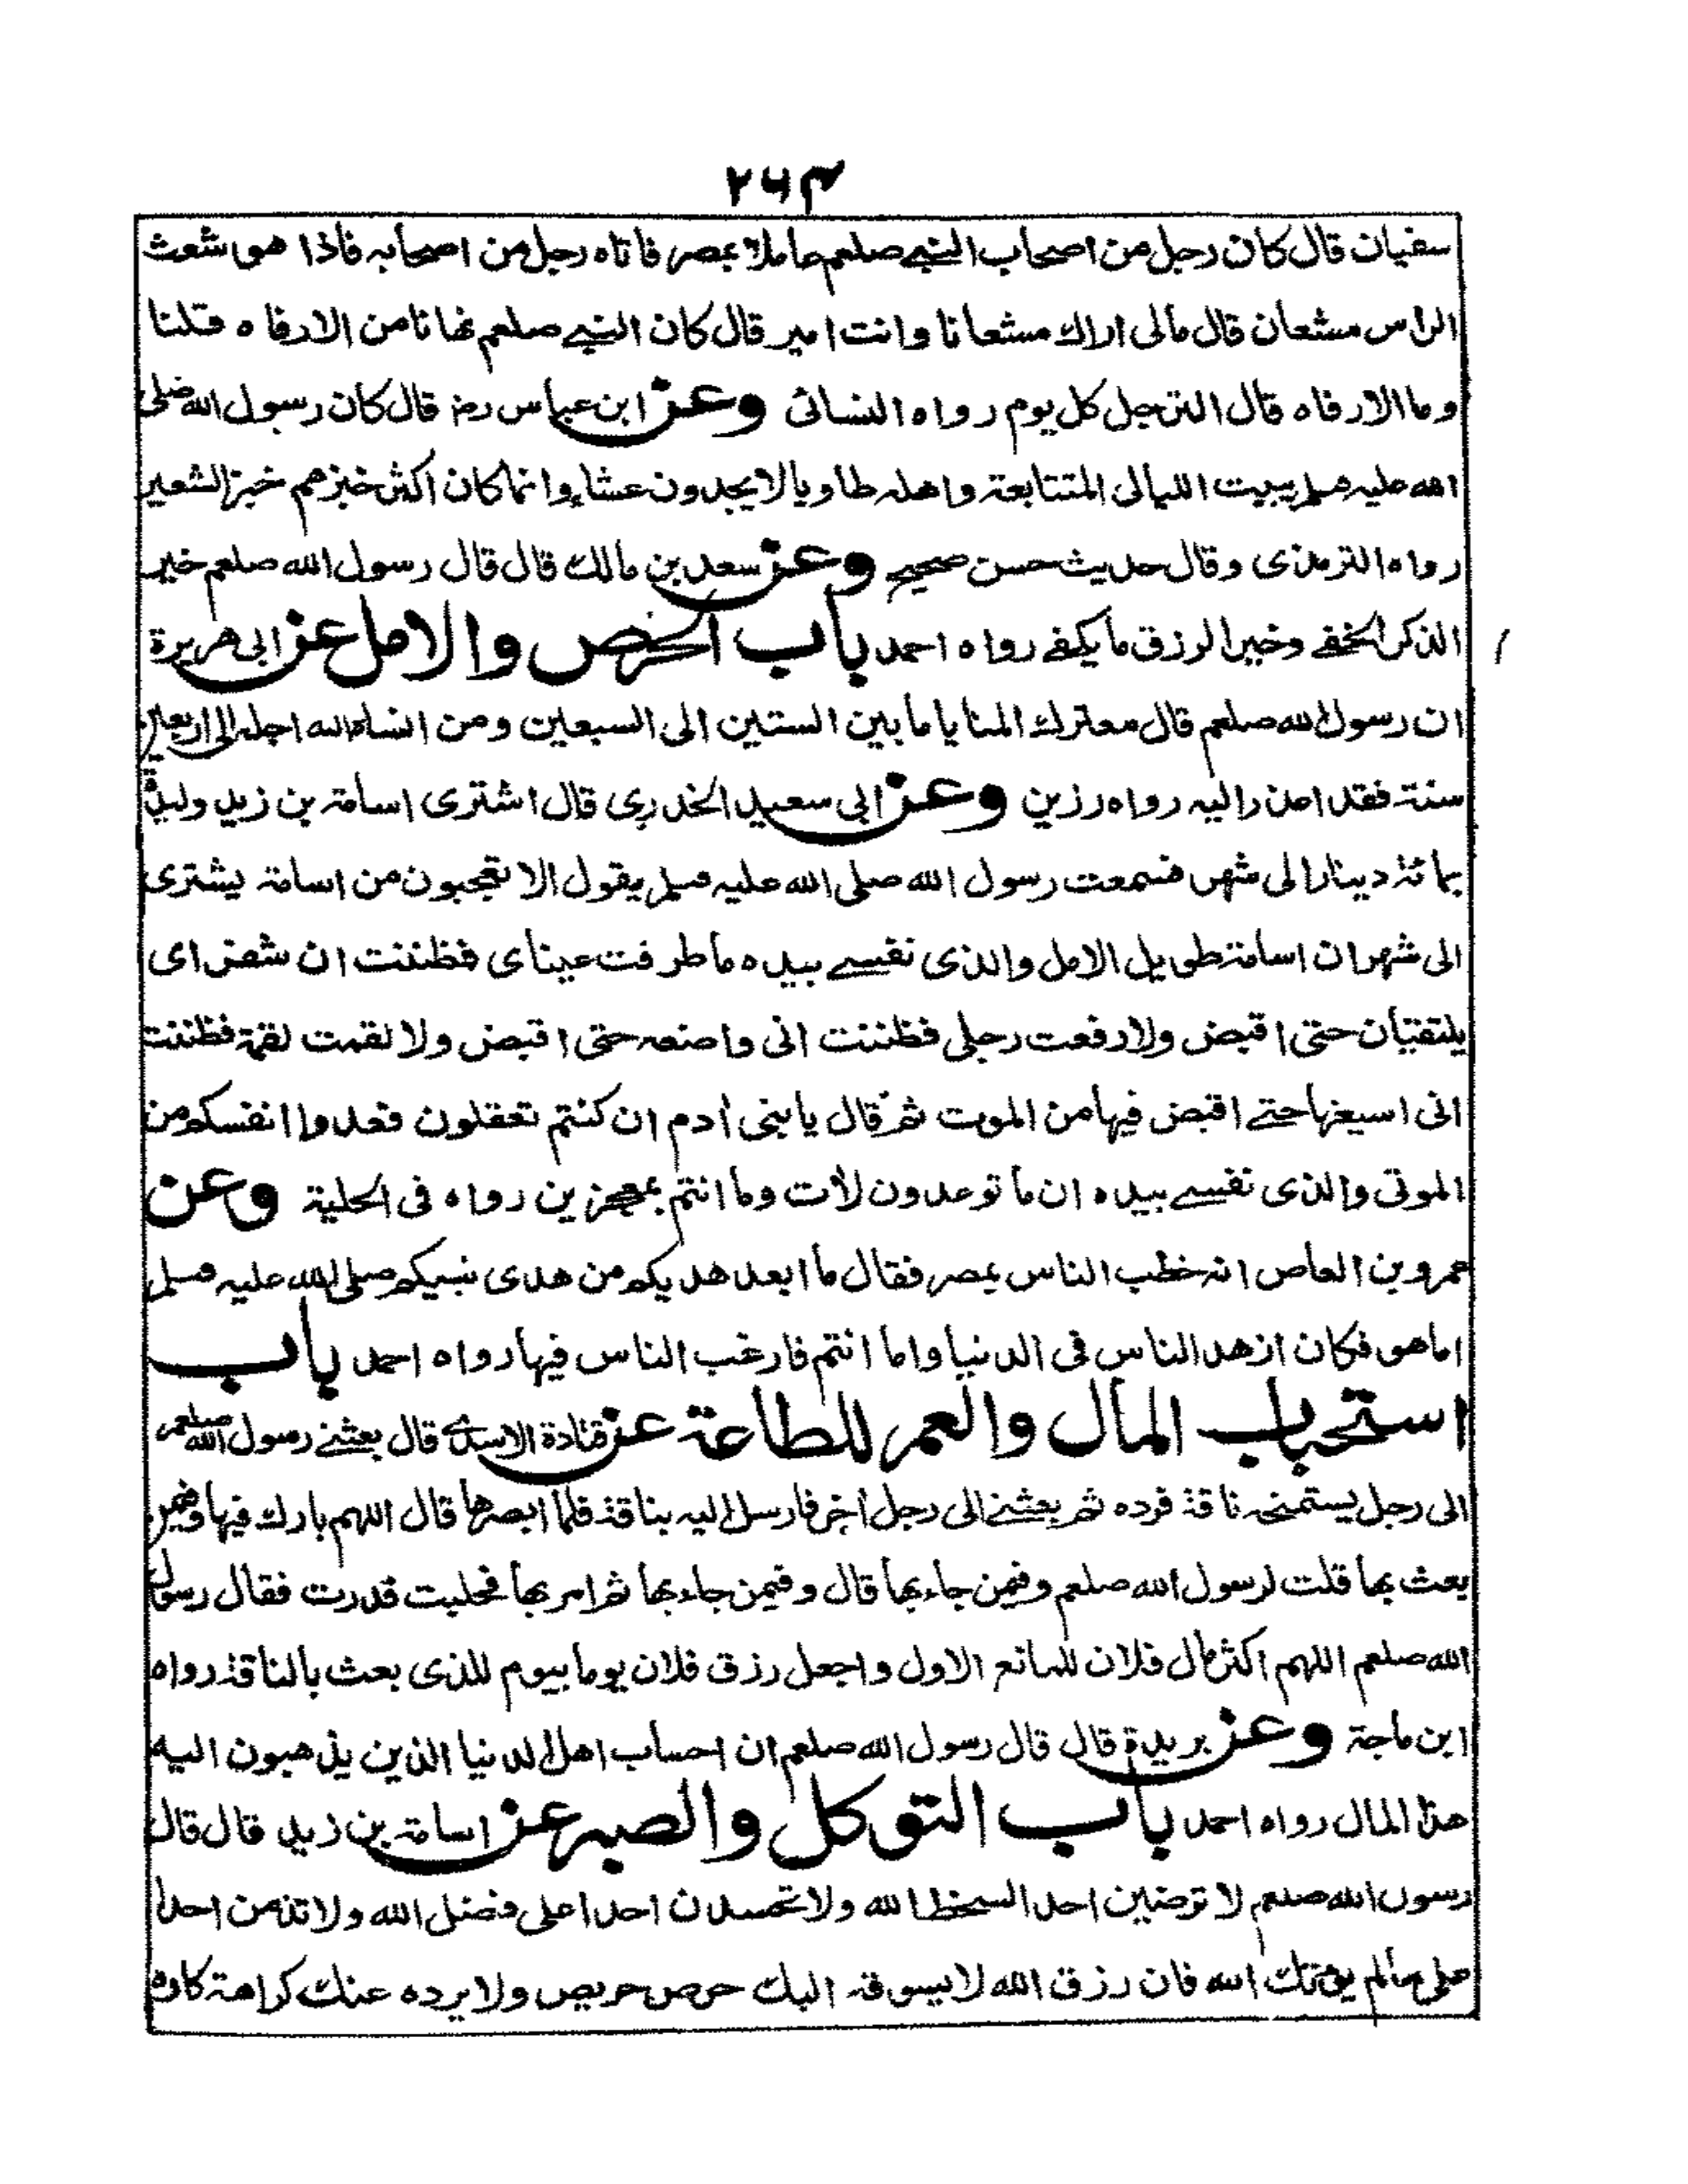 ۲۶۴
سفيان قال كان رجل من اصحاب النبي صلعم عاملا بمصر فاتاه رجل من اصحابه فاذا هو شعث
الراس مشعان قال مالى اراك مشعانا وانت امير قال كان النبي صلعم نهانا من الارفاه قلنا
وما الارفاه قال الترجل كل يوم رواه النسائى وعن ابن عباس رض قال كان رسول الله صلى
الله عليه وسلم يبيت الليالى المتتابعة واهله طاويا لا يجدون عشاء وانما كان اكثر خبزهم خبز الشعير
رواه الترمذى وقال حديث حسن صحيح وعن سعد بن مالك قال قال رسول الله صلعم خير
الذكر الخفے وخير الرزق ما يكفے رواه احمد باب الحرص والامل عن ابى هريرة
ان رسول الله صلعم قال معترك المنايا ما بين الستين الى السبعين ومن انساه الله اجله الى اربعين
سنة فقد اعذر اليه رواه رزين وعن ابى سعيد الخدرى قال اشترى اسامة بن زيد وليدة
بمائة دينار الى شهر فسمعت رسول الله صلى الله عليه وسلم يقول الا تعجبون من اسامة يشترى
الى شهر ان اسامة طويل الامل والذى نفسے بيده ما طرفت عيناى فظننت ان شفراى
يلتقيان حتى اقبض ولا رفعت رجلى فظننت انى واضعه حتى اقبض ولا لقمت لقمة فظننت
انى اسيغها حتے اقبض فيها من الموت ثم قال يا بنى أدم ان كنتم تعقلون فعدوا انفسكم من
الموتى والذى نفسے بيده ان ما توعدون لأت وما انتم بمعجزين رواه فى الحلية وعن
عمرو بن العاص انه خطب الناس بمصر فقال ما ابعد هديكم من هدى نبيكم صلى الله عليه وسلم
اما هو فكان ازهد الناس فى الدنيا واما انتم فارغب الناس فيها رواه احمد باب
استحباب المال والعمر للطاعة عن قتادة الاسدى قال بعثنے رسول الله صلعم
الى رجل يستمنحه ناقة فرده ثم بعثنے الى رجل أخر فارسل اليه بناقة فلما ابصرها قال اللهم بارك فيها وفيمن
بعث بها قلت لرسول الله صلعم وفيمن جاء بها قال وفيمن جاء بها ثم امر بها فحلبت فدرت فقال رسول
الله صلعم اللهم اكثر مال فلان للمانع الاول واجعل رزق فلان يوما بيوم للذى بعث بالناقة رواه
ابن ماجة وعن بريدة قال قال رسول الله صلعم ان احساب اهل الدنيا الذين يذهبون اليه
هذا المال رواه احمد باب التوكل والصبر عن اسامة بن زيد قال قال
رسول الله صلعم لا ترضين احدا بسخط الله ولا تحسدن احدا على فضل الله ولا تذمن احدا
على ما لم يؤتك الله فان رزق الله لا يسوقه اليك حرص حريص ولا يرده عنك كراهة كاره